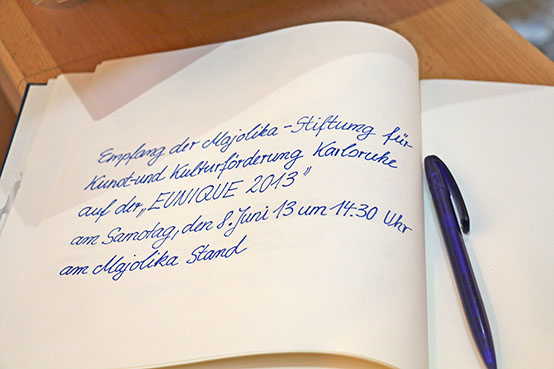 Empfang der Majolika-Stiftung für
Kunst-und Kulturförderung Karlsruhe
auf der „EUNIQUE 2013"
am Samstag, den 8. Juni 13 um 14.30 Uhr
am Majolika Stand